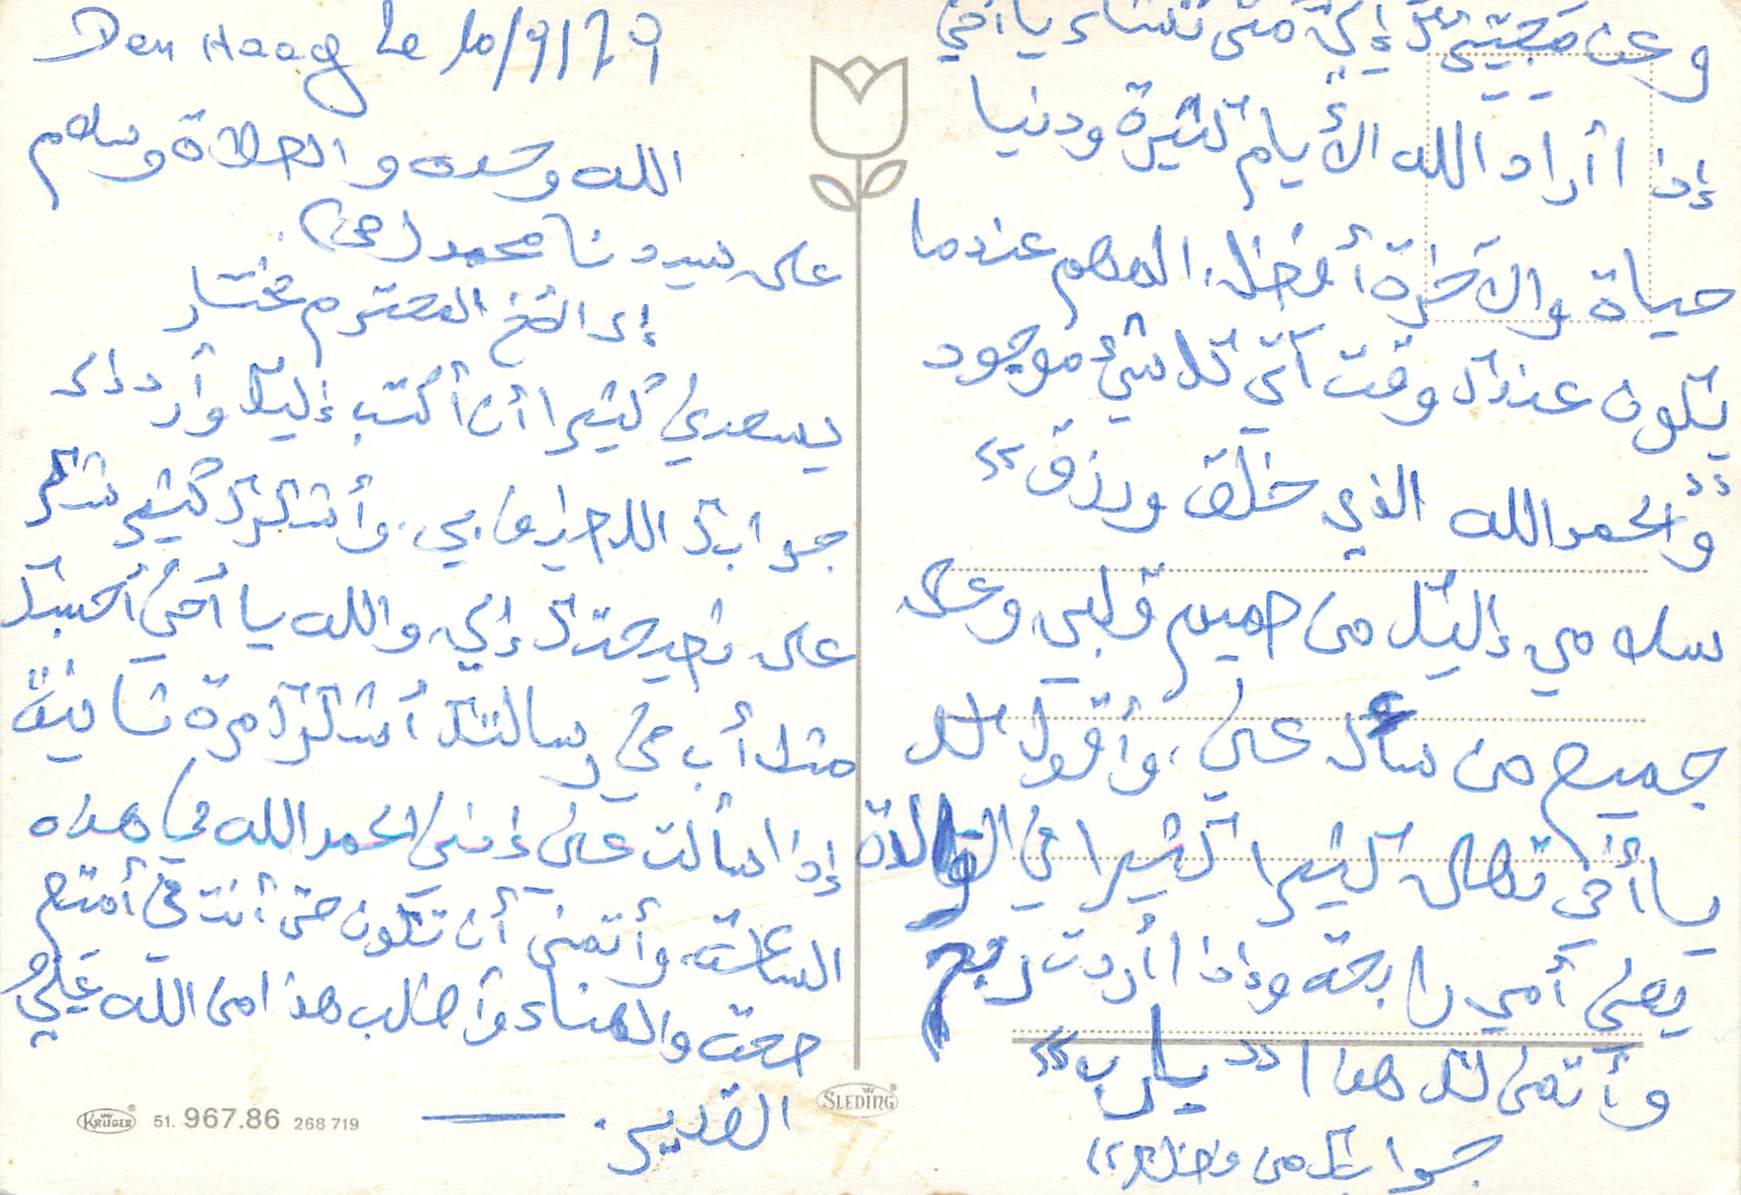 Den Haag Le 10/9/79
الله وحده والصلاة وسلام
على سيدنا محمد (ص).
إلى الأخ المحترم مختار
يسعدني كثيرا أن أكتب إليك وأرد
جوابك اللطيف بي. وأشكرك كثير شكر
على نصيحتك إلي، والله يا أخي أحبك
مثل أب في رسالتك أشكرك مرة ثانية
إذا سألت على إنني الحمد الله في هذه
الساعة، وأتمنى أن تكون حتى أنت في أمتع
صحة والهناء وأطلب هذا من الله
القدير.
KRÜGER 51. 967.86 268 719
SLEDING
وعن إلي متى تشاء يا أخي
إذا أراد الله الأيام كثيرة ودنيا
حياة والآخرة أفضل. المهم عندما
يكون عندك وقت آتي كل شيء موجود
"والحمد الله الذي خلق ورزق"
سلامي إليك من صميم قلبي وعلى
جميع من سأل علي، وأقول لك
يا أخي تهلى كثيرا كثيرا في
يعني أمي رابحة وإذا أردت ربح
وأتمنى لك هنا "يارب"
جوابك من فضلك"